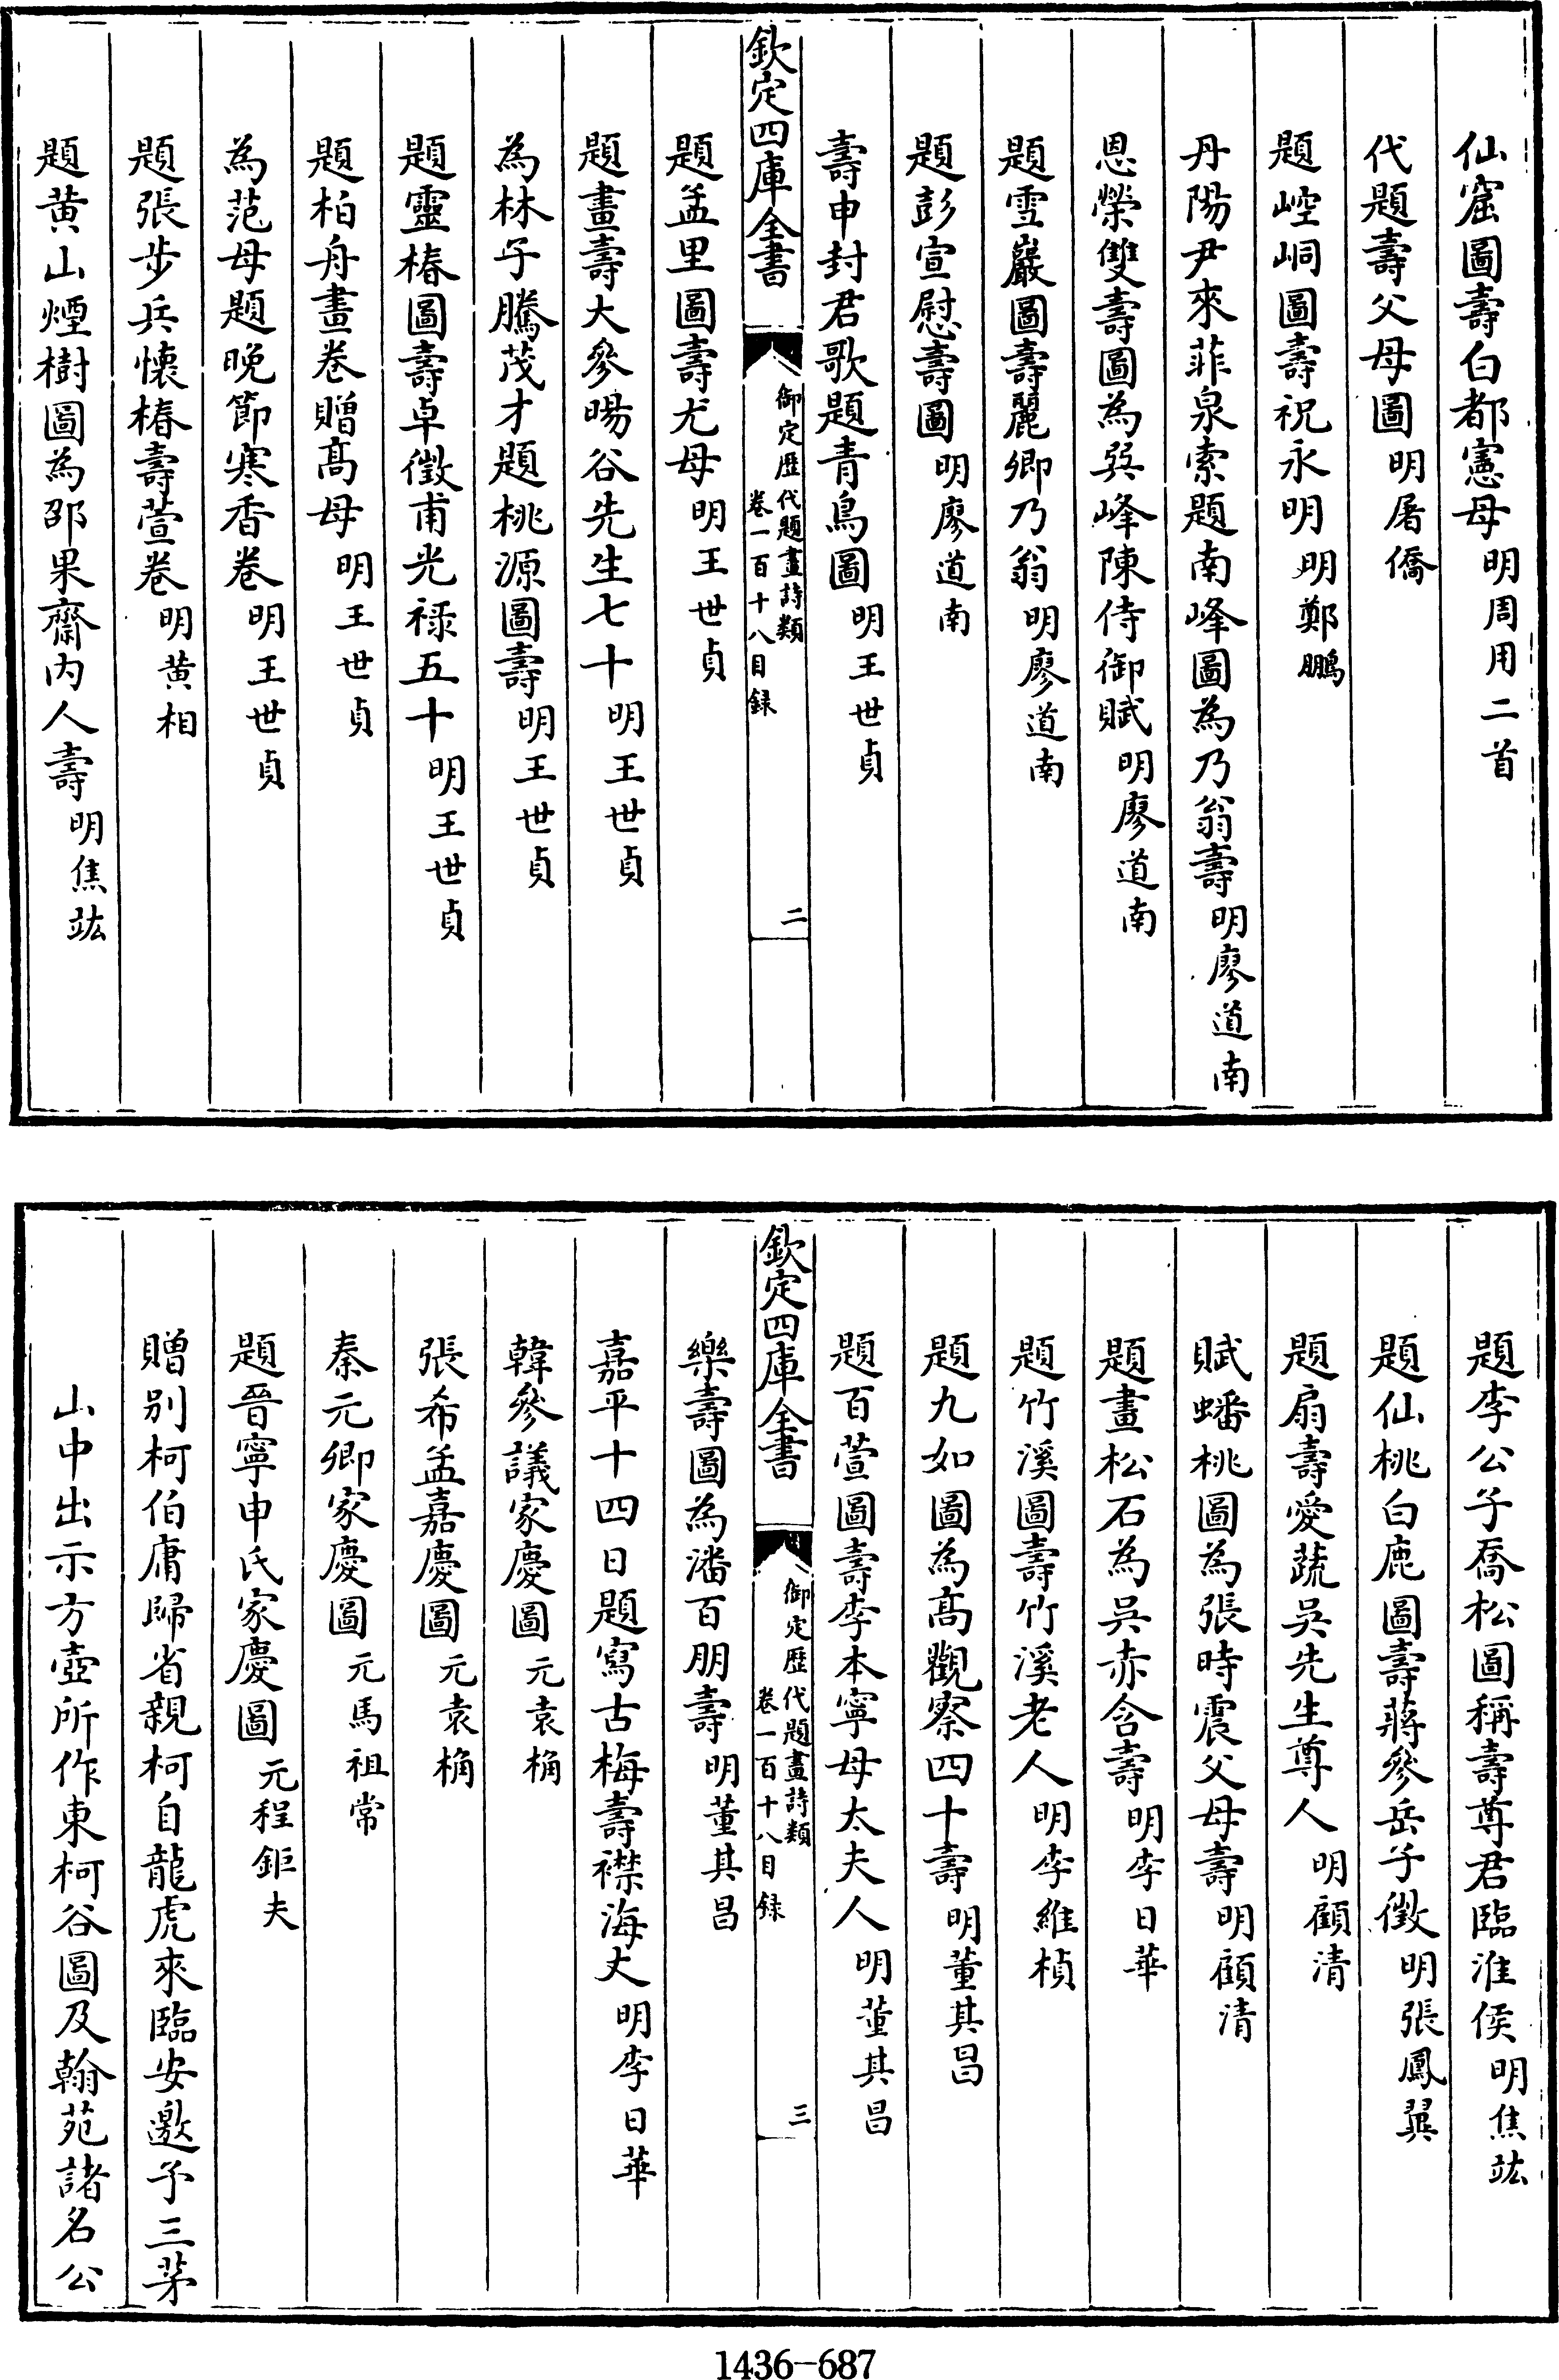 仙窟圖壽白都憲母明周用二首
代題壽父母圖明屠僑
題崆峒圖壽祝永明明鄭鵬
丹陽尹來菲泉索題南峰圖為乃翁壽明廖道南
恩榮雙壽圖為㢲峰陳侍御賦明廖道南
題雪巖圖壽麗卿乃翁明廖道南
題彭宣慰壽圖明廖道南
壽申封君歌題青鳥圖明王世貞
欽定四庫全書
御定歴代題畫詩類
卷一百十八目録
二
題孟里圖壽尤母明王世貞
題畫壽大參暘谷先生七十明王世貞
為林子騰茂才題桃源圖壽明王世貞
題靈椿圖壽卓徵甫光祿五十明王世貞
題柏舟畫卷贈髙母明王世貞
為范母題晚節寒香卷明王世貞
題張步兵懷椿壽萱卷明黄相
題黄山煙樹圖為邵果齋内人壽明焦竑
題李公子喬松圖稱壽尊君臨淮侯明焦竑
題仙桃白鹿圖壽蔣參岳子徵明張鳳翼
題扇壽愛蔬吳先生尊人明顧清
賦蟠桃圖為張時震父母壽明顧清
題畫松石為吳赤含壽明李日華
題竹溪圖壽竹溪老人明李維楨
題九如圖為髙觀察四十壽明董其昌
題百萱圖壽李本寧母太夫人明董其昌
欽定四庫全書
御定歴代題畫詩類
卷一百十八目録
三
樂壽圖為潘百朋壽明董其昌
嘉平十四日題寫古梅壽襟海丈明李日華
韓參議家慶圖元袁桷
張希孟嘉慶圖元袁桷
秦元卿家慶圖元馬祖常
題晉寧申氏家慶圖元程鉅夫
贈别柯伯庸歸省親柯自龍虎來臨安邀予三茅
山中出示方壺所作東柯谷圖及翰苑諸名公
1436-687